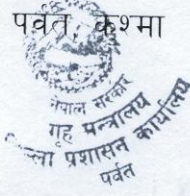 पर्वत, कुश्मा
नेपाल सरकार
गृह मन्त्रालय
जिल्ला प्रशासन कार्यालय
पर्वत